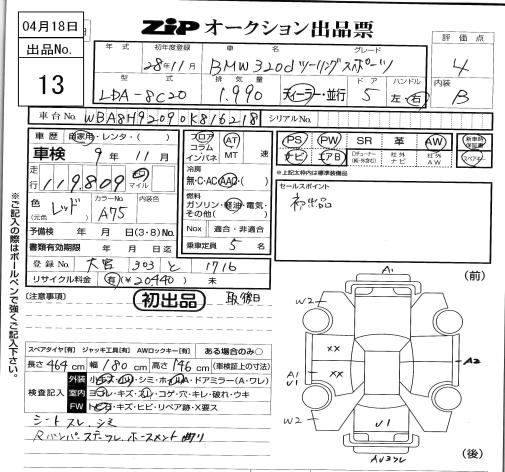 04月18日
出品No.
13
ZIP オークション出品票
年式 初年度登録 車名 グレード 評価点
28年11月 BMW320dツーリングスポーツ 4
型式 排気量 ドア ハンドル 内装
LDA-8C20 1.990 ディーラー・並行 5 左 右 B
車台No. WBA8H92090K816218 シリアルNo.
車歴 自家用・レンタ・
フロア コラム インパネ AT MT 速
車検 9年11月
PS PW SR 革 AW
ナビ エアB 社外ナビ 社外AW
新車時保証書
冷房 無・C・AC・AAC・
※上記太枠内は標準装備品
走行 119,809 マイル
燃料 ガソリン・軽油・電気・その他( )
セールスポイント
初出品
色(元色) レッド カラーNo. A75 内装色
予備検 年 月 日(3・8)No.
Nox 適合・非適合
書類有効期限 年 月 日迄
乗車定員 5 名
登録No. 大宮 303 と 1716
リサイクル料金 有(¥20440) 未
※ご記入の際はボールペンで強くご記入下さい。
(注意事項) 初出品
(前)
A1
W2 W2
スペアタイヤ[有] ジャッキ工具[有] AWロックキー[有] ある場合のみ○
長さ 464 cm 幅 180 cm 高さ 146 cm (車検証上の寸法)
XX XX
A1 U1
A2
検査記入
外装 小キズ・
・シミ・
・ドアミラー(A・ワレ)
室内 ヨゴレ・キズ・スレ・コゲ・穴・キレ・破れ・ウキ
FW トビ石・キズ・ヒビ・リペア跡・X要ス
シートスレ、シミ
W2 U1 W2
(後)